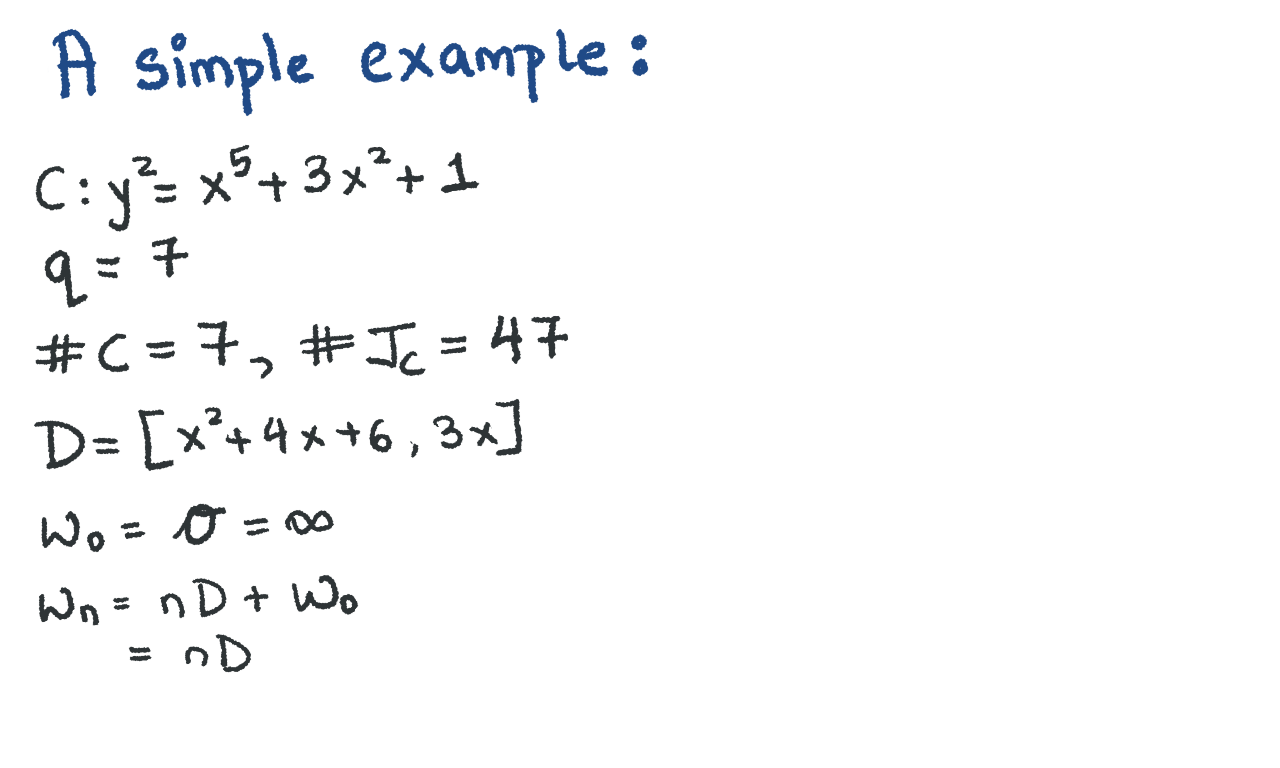 A simple example:
C: y² = x⁵ + 3x² + 1
q = 7
#C = 7, #J_C = 47
D = [x² + 4x + 6, 3x]
W₀ = 𝒪 = ∞
Wₙ = nD + W₀
= nD